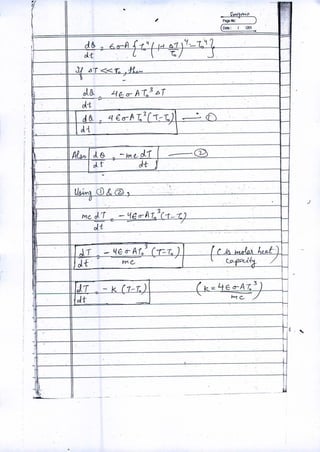 Page No.
Date: / /201
dQ/dt = ϵσA {T₀⁴ (1+ ΔT/T₀)⁴ - T₀⁴}
If ΔT << T₀, then
dQ/dt = 4ϵσAT₀³ΔT
dQ/dt = 4ϵσAT₀³(T-T₀) — ①
Also dQ/dt = -mc dT/dt — ②
Using ① & ②,
mc dT/dt = -4ϵσAT₀³(T-T₀)
dT/dt = -4ϵσAT₀³/mc (T-T₀) (C is molar heat capacity)
dT/dt = -k (T-T₀) (k = 4ϵσAT₀³/mc)